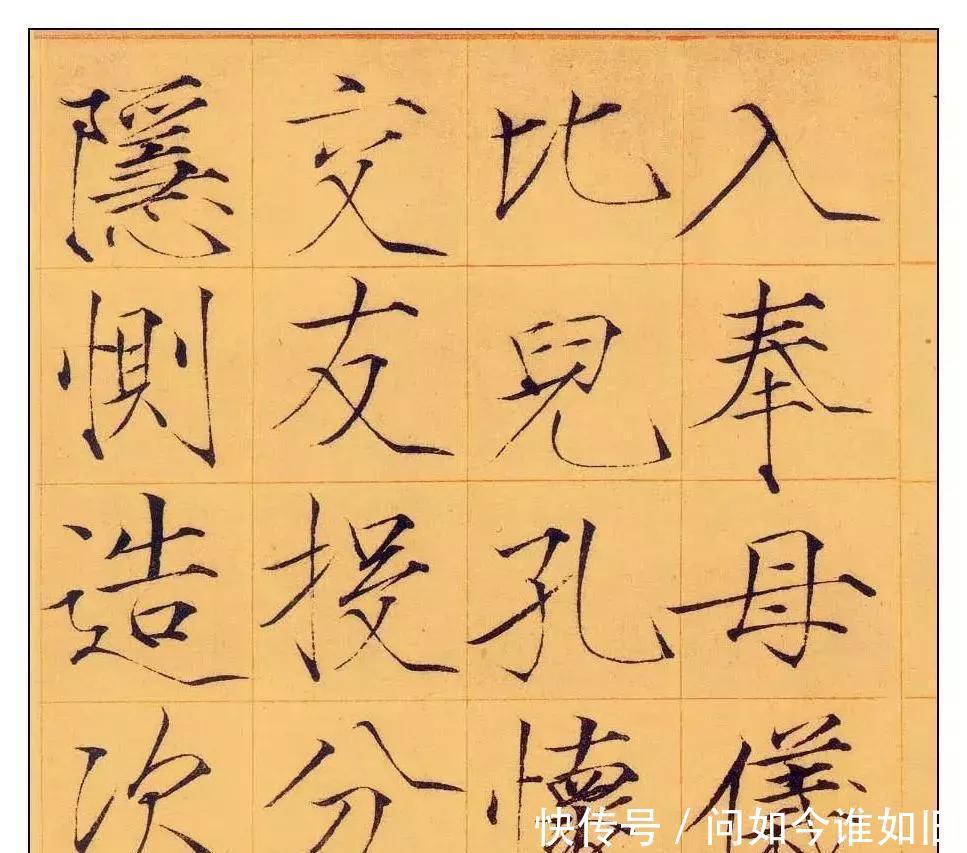 入奉母儀
比兒孔懷
交友投分
隱惻造次
快传号 / 问如今谁如旧